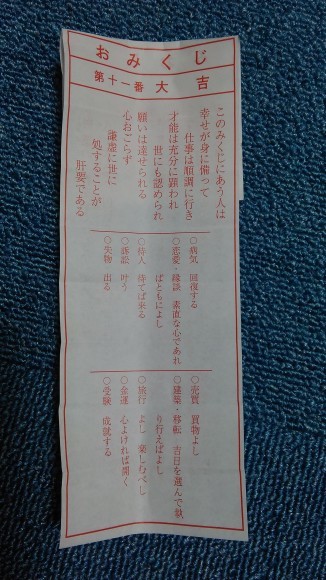 おみくじ
第十一番 大吉
このみくじにあう人は
幸せが身に備って
仕事は順調に行き
才能は充分に顕われ
世にも認められ
願いは達せられる
心おごらず
謙虚に世に
処することが
肝要である
○病気 回復する
○恋愛・縁談 素直な心であれ
ばともによし
○待人 待てば来る
○訴訟 叶う
○失物 出る
○売買 買物よし
○建築・移転 吉日を選んで執
り行えばよし
○旅行 よし 楽し行べし
○金運 心よければ開く
○受験 成就する